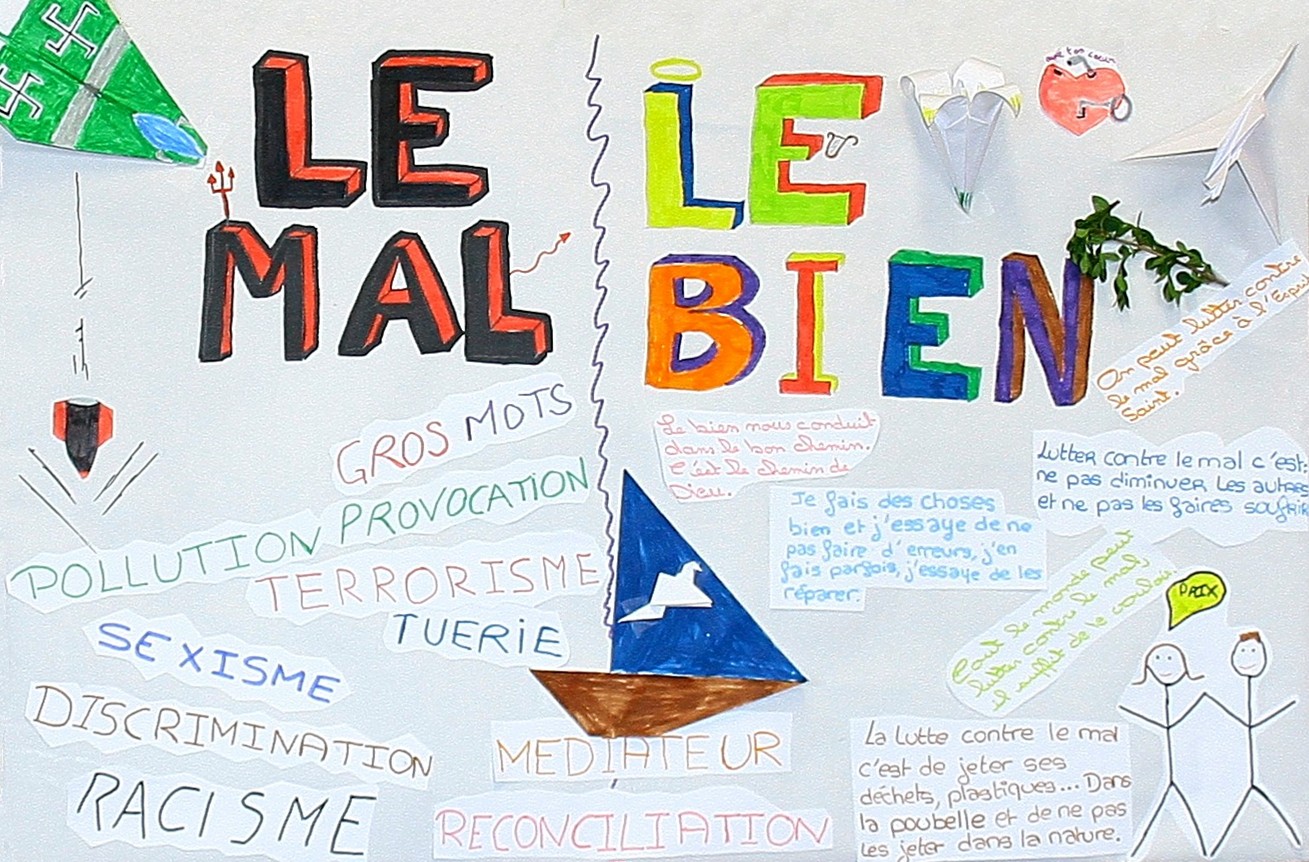 LE
MAL
GROS MOTS
PROVOCATION
POLLUTION
TERRORISME
TUERIE
SEXISME
DISCRIMINATION
RACISME
MEDIATEUR
RECONCILIATION
LE
BIEN
On peut lutter contre
le mal grâce à l'Esprit
Saint.
Le bien nous conduit
dans le bon chemin.
C'est le chemin de
Dieu.
Lutter contre le mal c'est
ne pas diminuer les autres
et ne pas les faires souffrir
Je fais des choses
bien et j'essaye de ne
pas faire d'erreurs, j'en
fais parfois, j'essaye de les
réparer.
Tout le monde peut
lutter contre le mal
il suffit de le vouloir.
PAIX
La lutte contre le mal
c'est de jeter ses
déchets, plastiques... Dans
la poubelle et de ne pas
les jeter dans la nature.